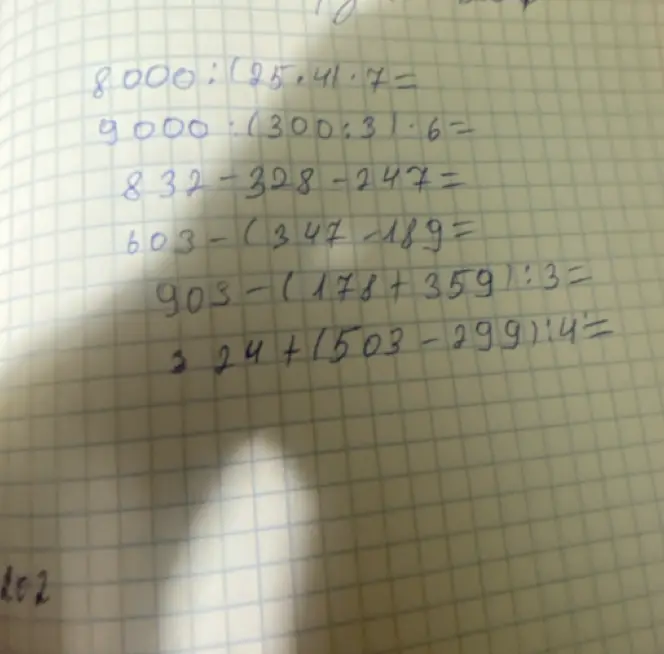 8000:(25·4)·7=
9000:(300:3)·6=
832-328-247=
603-(347-189=
903-(178+359):3=
324+(503-299):4=
202